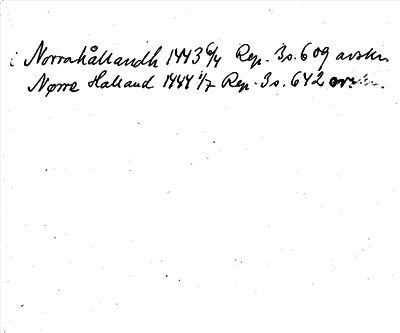 i Norrahållandh 1443 6/4 Rep. 3 s. 609 avskr.
Nørre Halland 1444 1/7 Rep. 3 s. 642